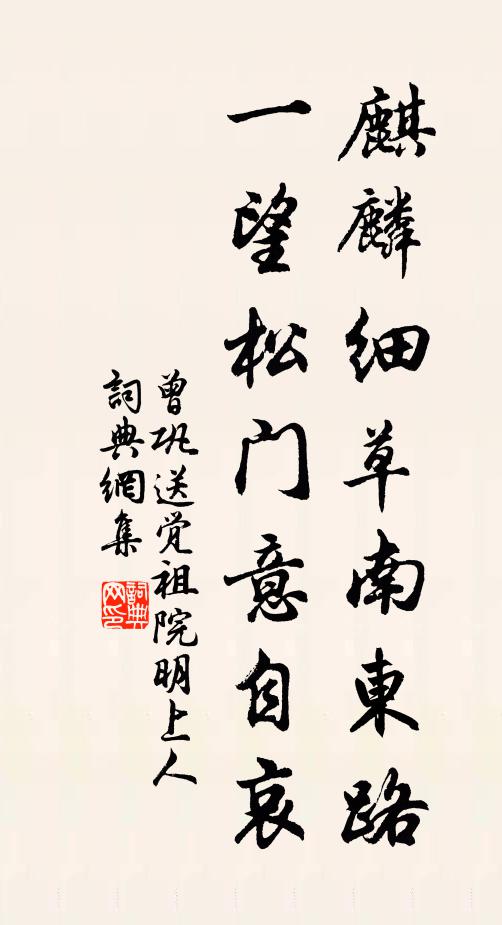 麒麟細草南東路
一望松门意自哀
曾巩送觉祖院明上人
詞典網集
詞典网印